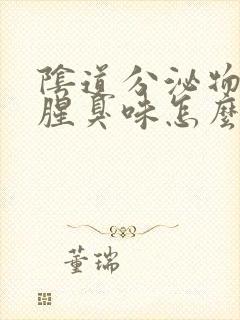 陰道分泌物
腥臭味怎麼
董瑞